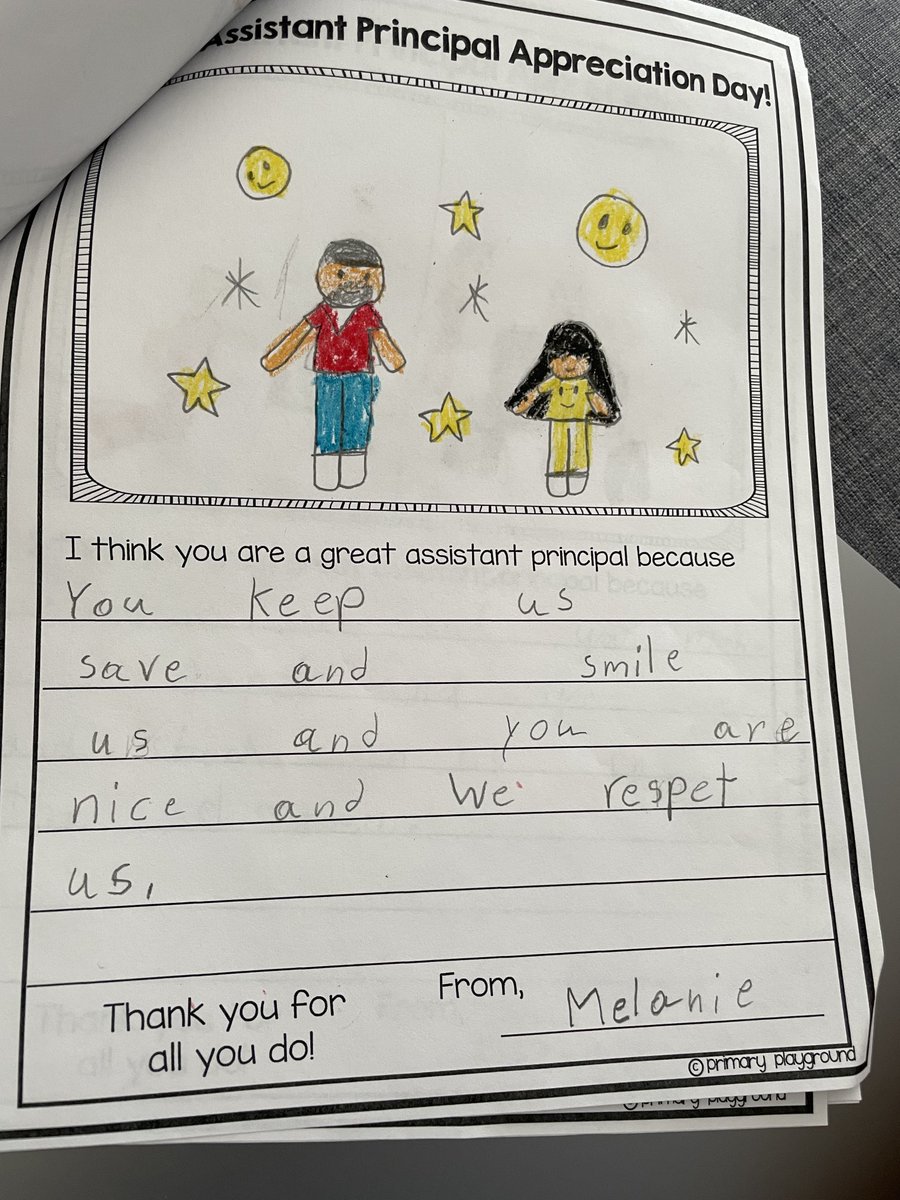 Assistant Principal Appreciation Day!
I think you are a great assistant principal because
You keep us
save and smile
us and you are
nice and We respet
us,
Thank you for
all you do!
From,
Melanie
©primary playground
©primary playground